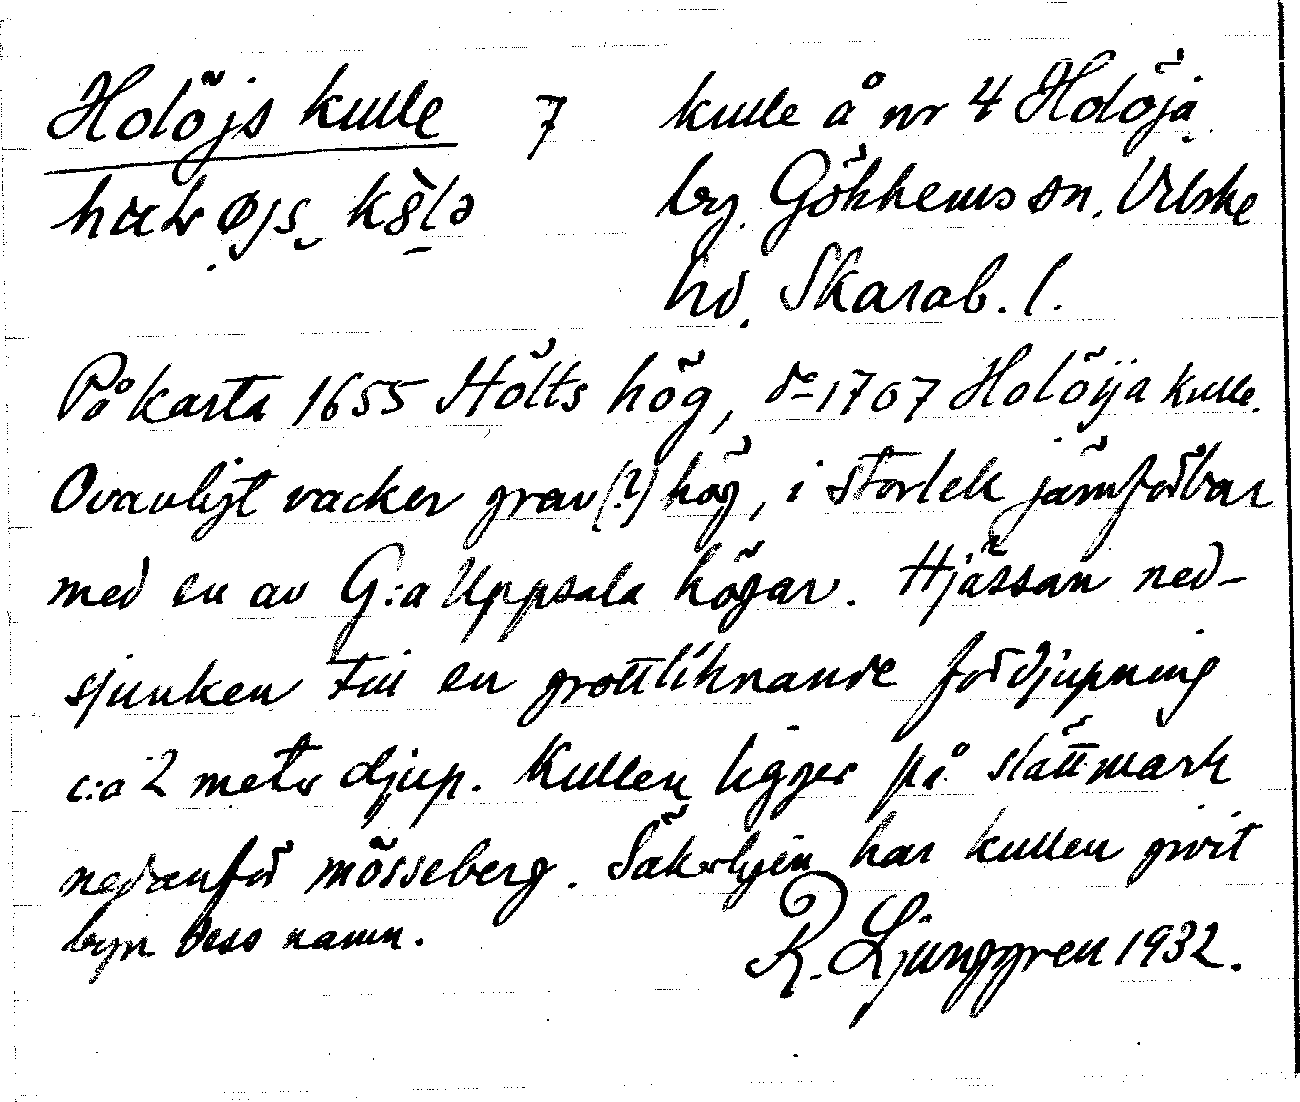 Holöjs kulle 7 kulle å nr 4 Holöja
by. Gökhems sn. Vilske
hd. Skarab. l.
På karta 1655 Hölts hög, do 1707 Holöija kulle.
Ovanligt vacker grav(?)hög, i storlek jämförbar
med en av G:a Uppsala högar. Hjässan ned-
sjunken till en grottliknande fördjupning
c:a 2 meter djup. Kullen ligger på slättmark
nedanför mösseberg. Säkerligen har kullen givit
byn dess namn.
R. Ljunggren 1932.